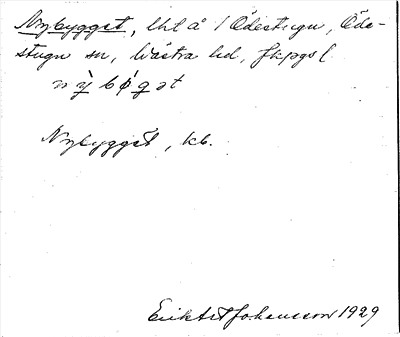 Nybygget, lht å 1 Ödestugu, Öde-
stugu sn, Västra hd, Jkpgs l
n y̆̀ b ǿ g ə t
Nybygget, kb.
Erik Art Johansson 1929